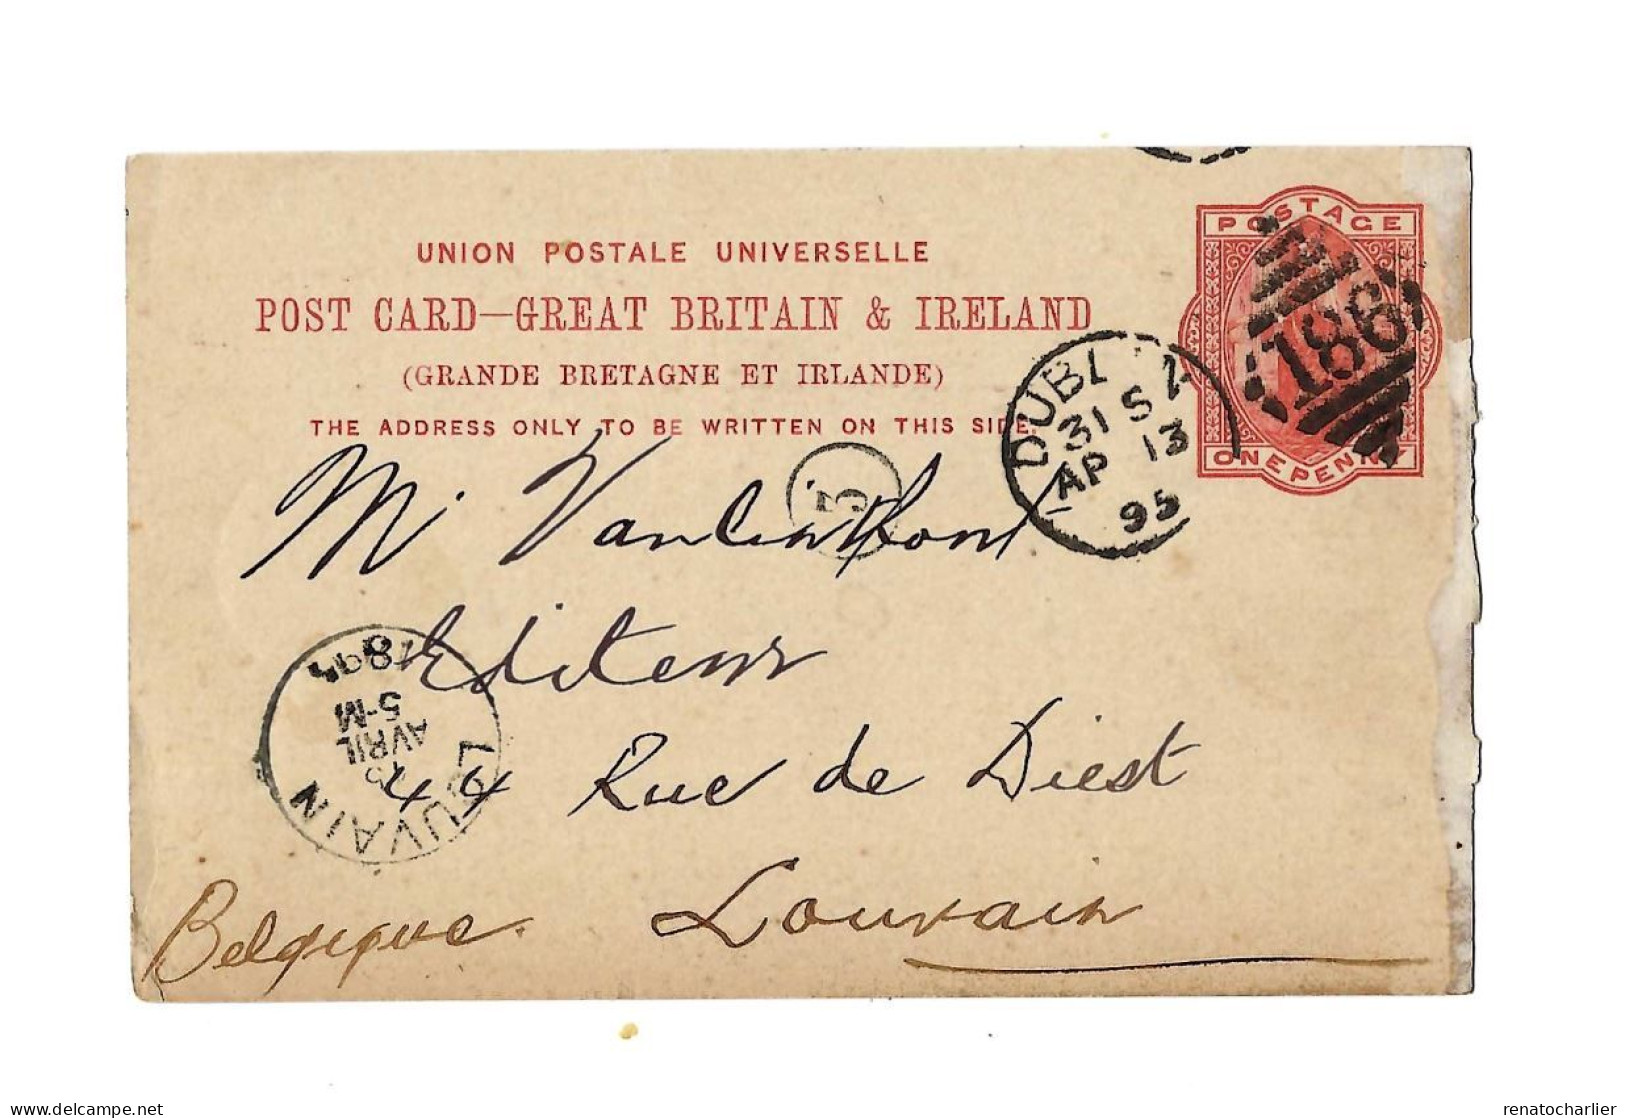 POSTAGE
UNION POSTALE UNIVERSELLE
POST CARD—GREAT BRITAIN & IRELAND
(GRANDE BRETAGNE ET IRLANDE)
THE ADDRESS ONLY TO BE WRITTEN ON THIS SIDE.
186
ONE PENNY
DUBL
31 S
AP 13
95
3
Mr Vanlinthout
Editeur
44 Rue de Diest
Louvain
Belgique.
LOUVAIN
AVRIL
5-M
renatocharlier